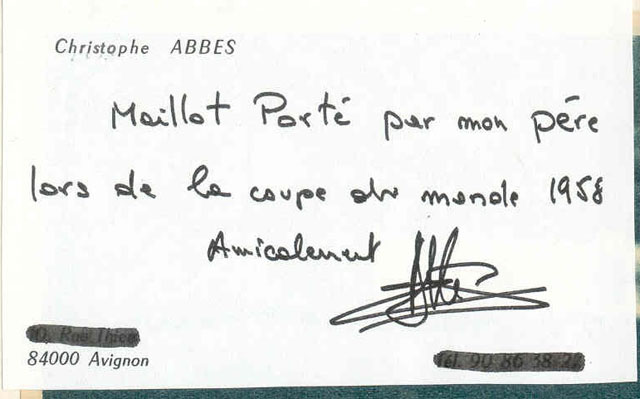 Christophe ABBES
Maillot Porté par mon père
lors de la coupe du monde 1958
Amicalement
84000 Avignon